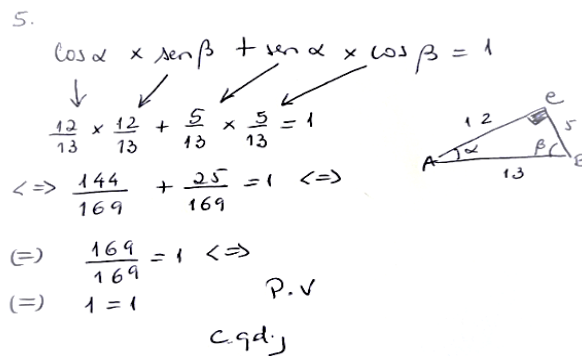 5.
cos α × sen β + sen α × cos β = 1
12/13 × 12/13 + 5/13 × 5/13 = 1
<=> 144/169 + 25/169 = 1 <=>
(=) 169/169 = 1 <=>
(=) 1 = 1
P.V
C.q.d.;
C
12
5
A
α
β
B
13